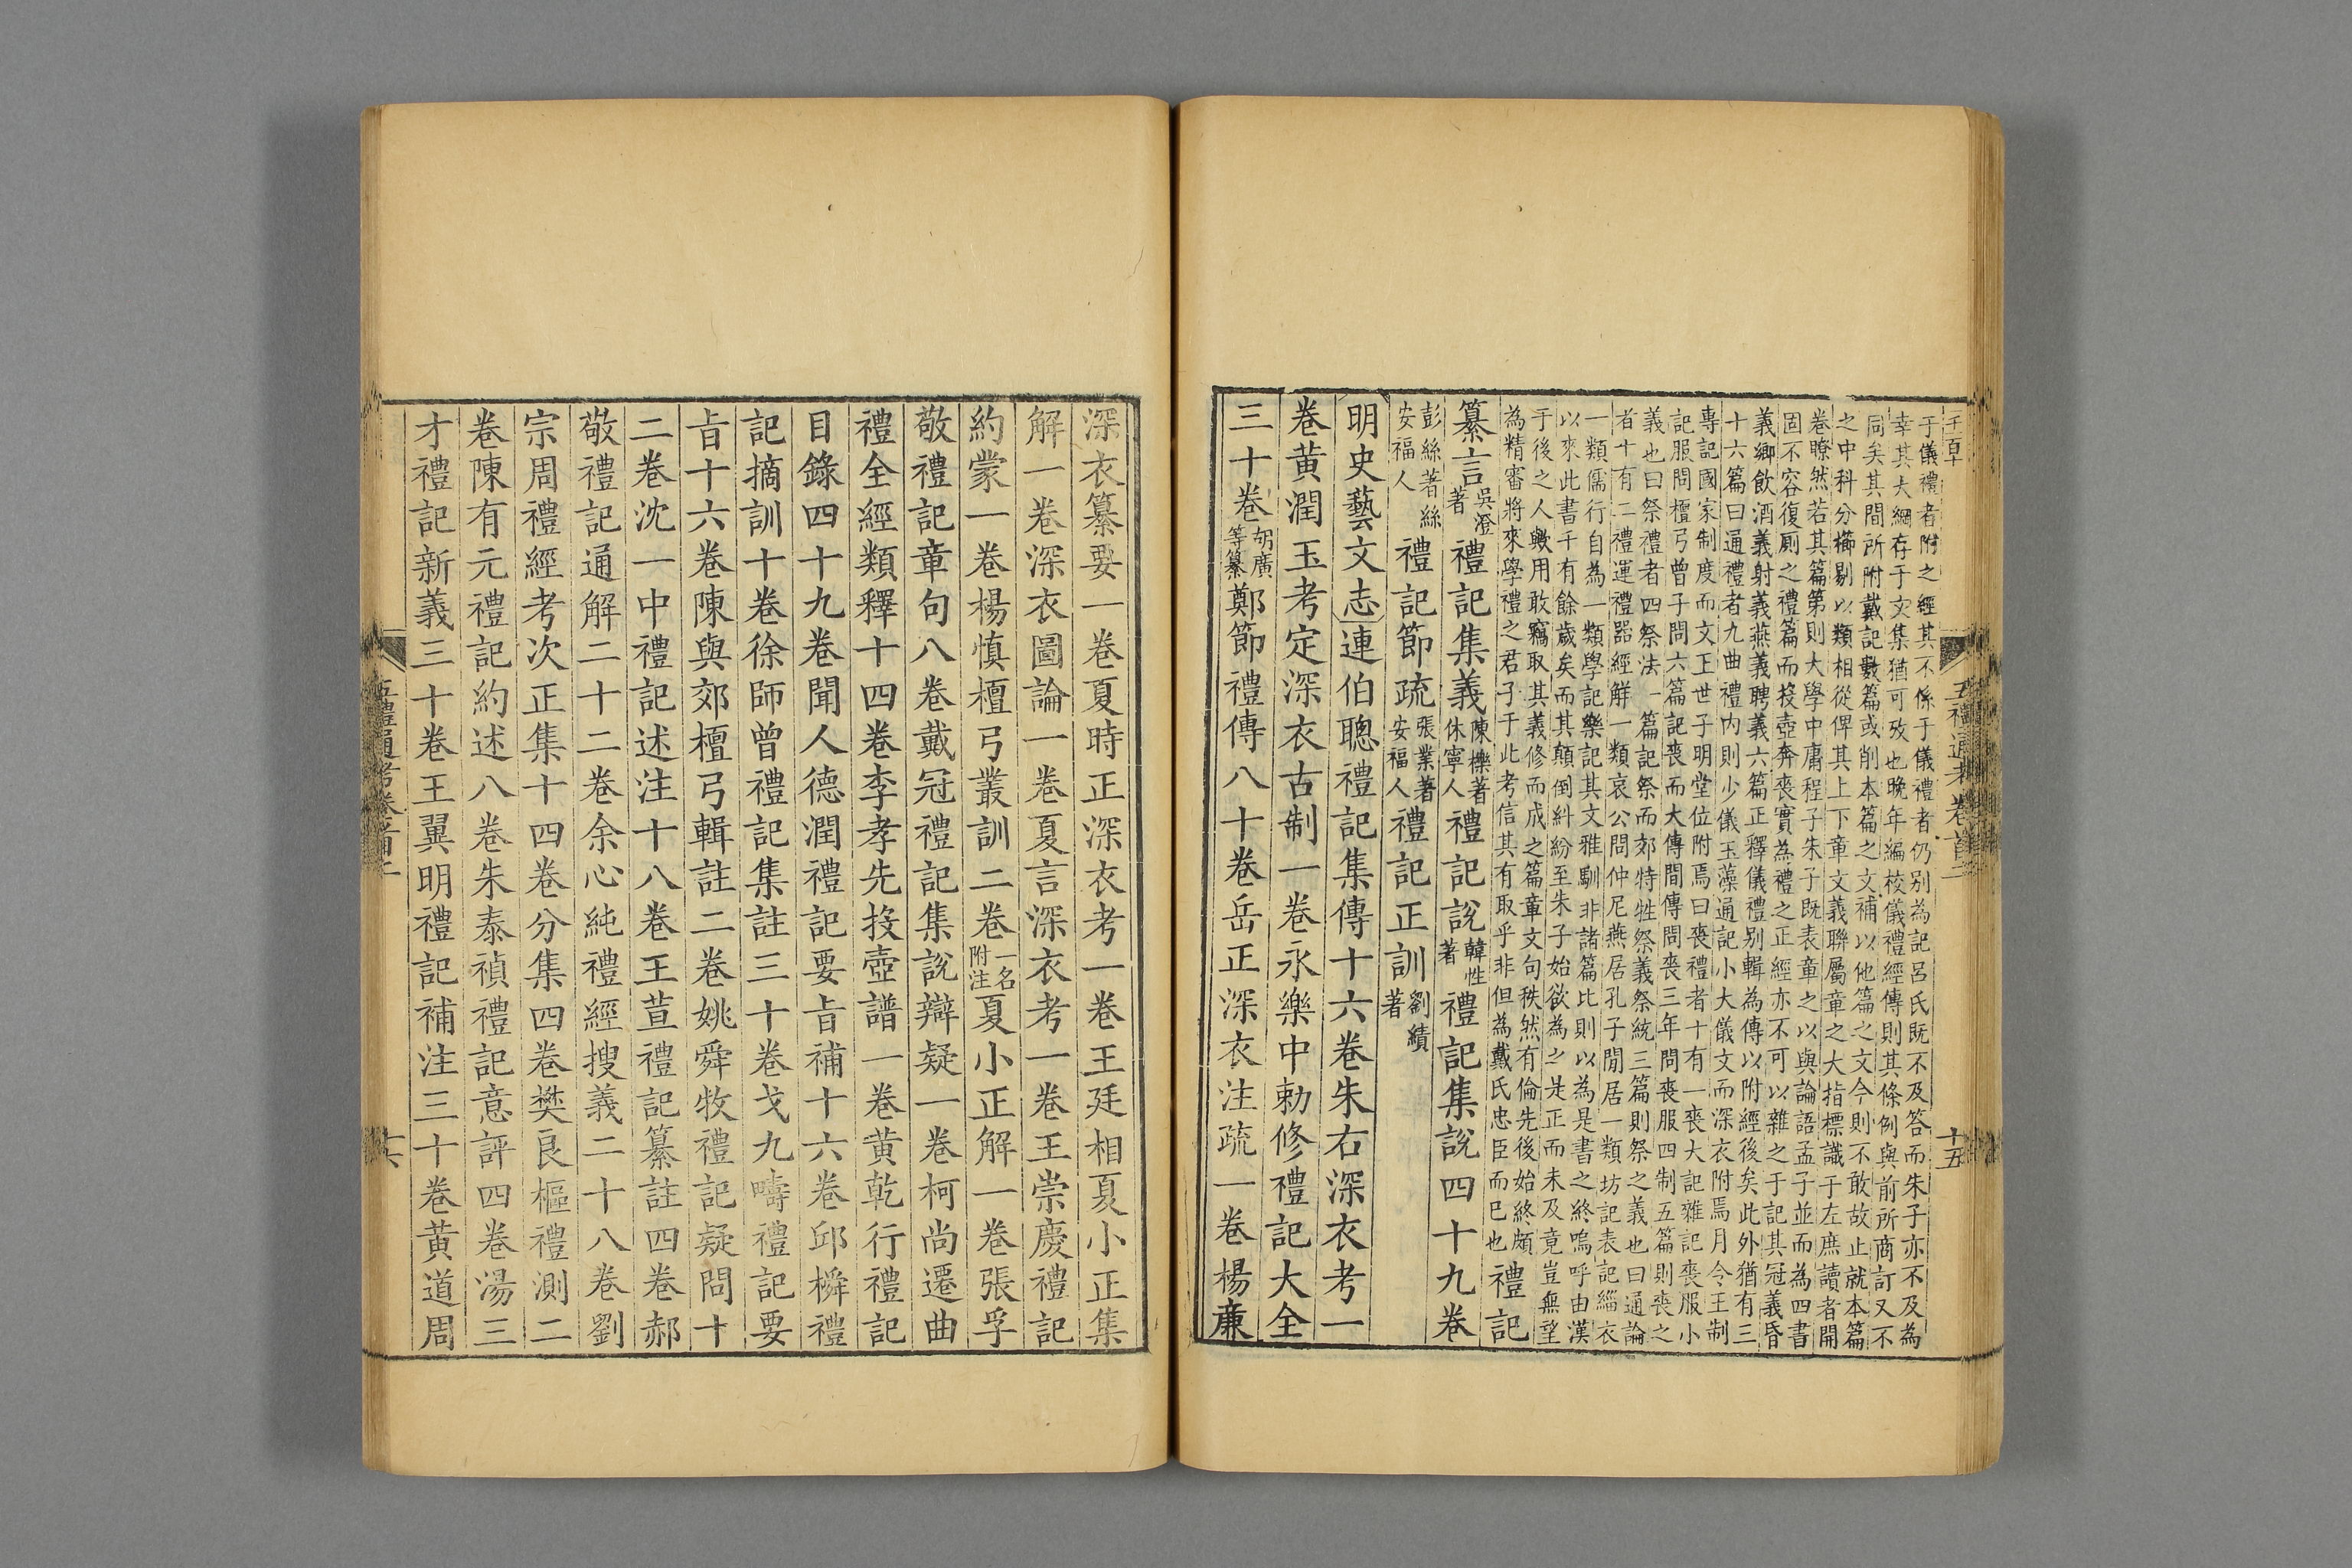 于儀禮者附之經其不係于儀禮者仍别為記呂氏既不及答而朱子亦不及為
幸其大綱存于文集猶可攷也晚年編校儀禮經傳則其條例與前所商訂又不
同矣其間所附戴記數篇或削本篇之文補以他篇之文今則不敢故止就本篇
之中科分櫛剔以類相從俾其上下章文義聯屬章之大指標識于左庶讀者開
卷瞭然若其篇第則大學中庸程子朱子既表章之以與論語孟子並而為四書
固不容復厠之禮篇而投壺奔喪實為禮之正經亦不可以雜之于記其冠義昏
義鄉飲酒義射義燕義聘義六篇正釋儀禮别輯為傳以附經後矣此外猶有三
十六篇曰通禮者九曲禮内則少儀玉藻通記小大儀文而深衣附焉月令王制
專記國家制度而文王世子明堂位附焉曰喪禮者十有一喪大記雜記喪服小
記服問檀弓曾子問六篇記喪而大傳間傳問喪三年問喪服四制五篇則喪之
義也曰祭禮者四祭法一篇記祭而郊特牲祭義祭統三篇則祭之義也曰通論
者十有二禮運禮器經解一類哀公問仲尼燕居孔子閒居一類坊記表記緇衣
一類儒行自為一類學記樂記其文雅馴非諸篇比則以為是書之終嗚呼由漢
以來此書千有餘歲矣而其顛倒糾紛至朱子始欲為之是正而未及竟豈無望
于後之人歟用敢竊取其義修而成之篇章文句秩然有倫先後始終頗
為精審將來學禮之君子于此考信其有取乎非但為戴氏忠臣而已也禮記
纂言吳澄著禮記集義陳櫟著休寧人禮記說韓性著禮記集說四十九卷
彭絲著絲安福人禮記節疏張業著安福人禮記正訓劉績著
明史藝文志連伯聰禮記集傳十六卷朱右深衣考一
卷黄潤玉考定深衣古制一卷永樂中勅修禮記大全
三十卷胡廣等纂鄭節禮傳八十卷岳正深衣注疏一卷楊廉
五禮通考卷首二
十五
深衣纂要一卷夏時正深衣考一卷王廷相夏小正集
解一卷深衣圖論一卷夏言深衣考一卷王崇慶禮記
約蒙一卷楊慎檀弓叢訓二卷一名附注夏小正解一卷張孚
敬禮記章句八卷戴冠禮記集說辯疑一卷柯尚遷曲
禮全經類釋十四卷李孝先投壺譜一卷黄乾行禮記
目錄四十九卷聞人德潤禮記要旨補十六卷邱橓禮
記摘訓十卷徐師曾禮記集註三十卷戈九疇禮記要
旨十六卷陳與郊檀弓輯註二卷姚舜牧禮記疑問十
二卷沈一中禮記述注十八卷王荁禮記纂註四卷郝
敬禮記通解二十二卷余心純禮經搜義二十八卷劉
宗周禮經考次正集十四卷分集四卷樊良樞禮測二
卷陳有元禮記約述八卷朱泰禎禮記意評四卷湯三
才禮記新義三十卷王翼明禮記補注三十卷黄道周
五禮通考卷首二
十六